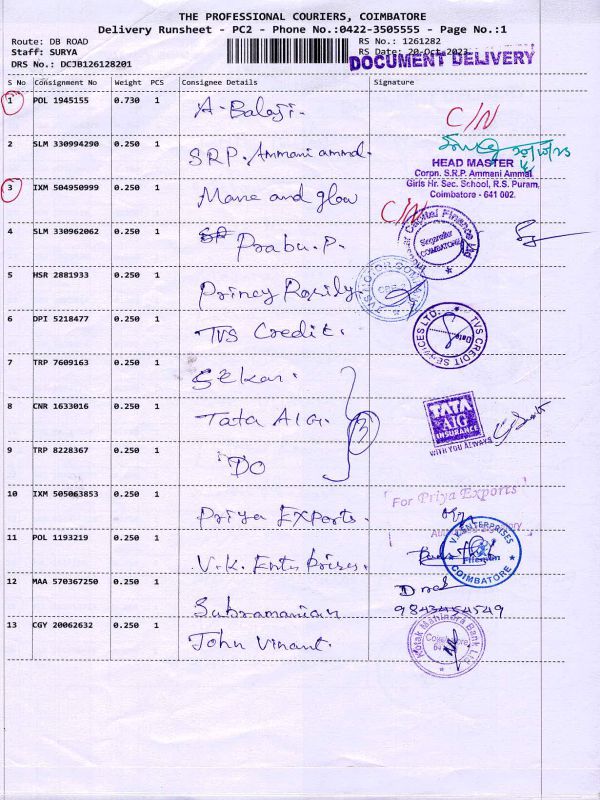 THE PROFESSIONAL COURIERS, COIMBATORE
Delivery Runsheet - PC2 - Phone No.:0422-3505555 - Page No.:1
Route: DB ROAD
RS No.: 1261282
Staff: SURYA
RS Date: 20-Oct-2023
DRS No.: DCJB126128201
DOCUMENT DELIVERY
S No Consignment No Weight PCS Consignee Details Signature
1 POL 1945155 0.730 1 A. Balaji. C/N
2 SLM 330994290 0.250 1 S.R.P. Ammani ammal. 20/10/23
HEAD MASTER
Corpn. S.R.P. Ammani Ammal
Girls Hr. Sec. School, R.S. Puram,
Coimbatore - 641 002.
3 IXM 504950999 0.250 1 Mane and glow C/N
4 SLM 330962062 0.250 1 Prabu. P.
Capital Finance Ltd
COIMBATORE
5 HSR 2881933 0.250 1 Princy
6 DPI 5218477 0.250 1 TVS Credit.
TVS CREDIT SERVICES LTD.
7 TRP 7609163 0.250 1 Sekar.
8 CNR 1633016 0.250 1 Tata AIG. 3
TATA
AIG
INSURANCE
WITH YOU ALWAYS
9 TRP 8228367 0.250 1 DO
10 IXM 505063853 0.250 1 Priya Exports.
For Priya Exports
11 POL 1193219 0.250 1 V.K. Enterprises.
V.K. ENTERPRISES
COIMBATORE
12 MAA 570367250 0.250 1 Subramanian
9843454549
13 CGY 20062632 0.250 1 John Vinant.
Kotak Mahindra Bank Ltd